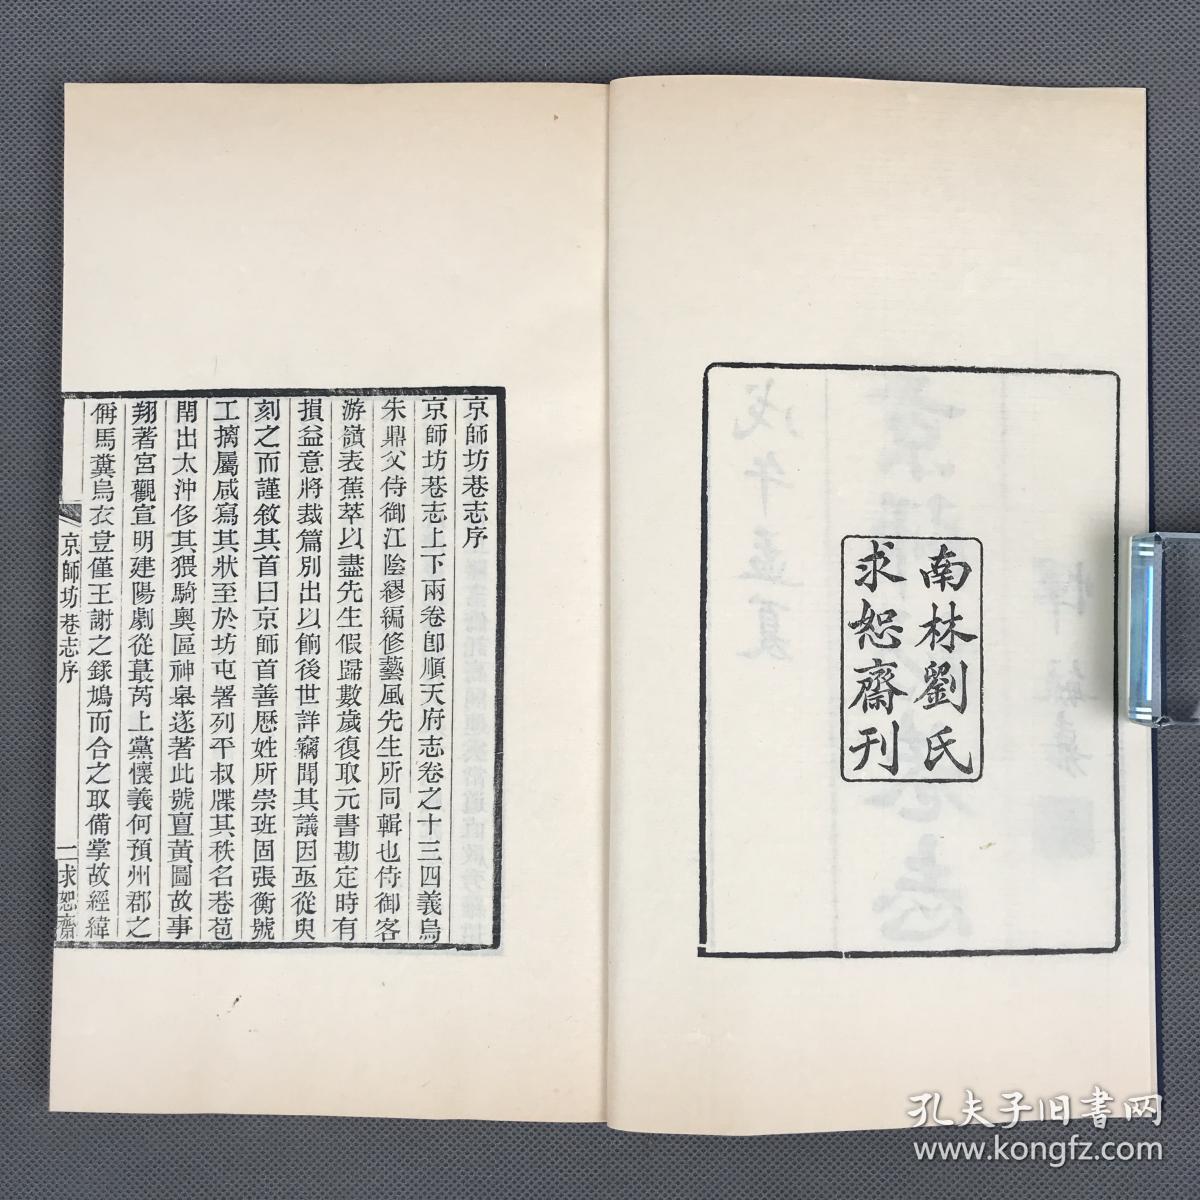 南林劉氏
求恕齋刊
京師坊巷志序
京師坊巷志上下兩卷卽順天府志卷之十三四義烏
朱鼎父侍御江陰繆編修藝風先生所同輯也侍御客
游嶺表蕉萃以盡先生假歸數歲復取元書勘定時有
損益意將裁篇別出以餉後世詳竊聞其議因亟從臾
刻之而謹敘其首曰京師首善厯姓所崇班固張衡號
工摛屬咸寫其狀至於坊屯署列平叔牒其秩名巷苞
閈出太沖侈其猥騎奧區神皋遂著此號亶黃圖故事
翔著宮觀宣明建陽劇從蕞芮上黨懷義何預州郡之
侕馬糞烏衣豈僅王謝之鍒鳩而合之取備掌故經緯
京師坊巷志序
一
求恕齋
戊午孟夏
孔夫子旧書网
www.kongfz.com